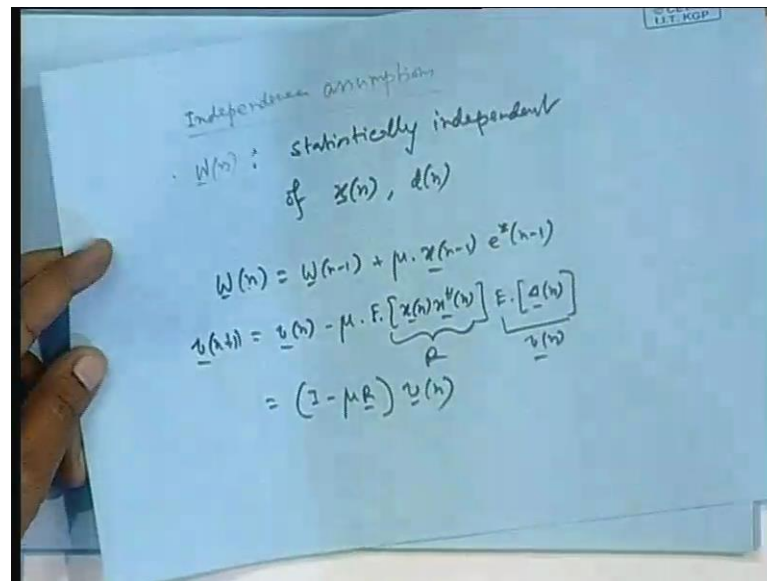 I.I.T. KGP
Independence assumption
W(n) : statistically independent
of x(n), d(n)
W(n) = W(n-1) + μ. x(n-1) e*(n-1)
v(n+1) = v(n) - μ. E.[x(n) x^H(n)] E.[Δ(n)]
R v(n)
= (I - μR) v(n)